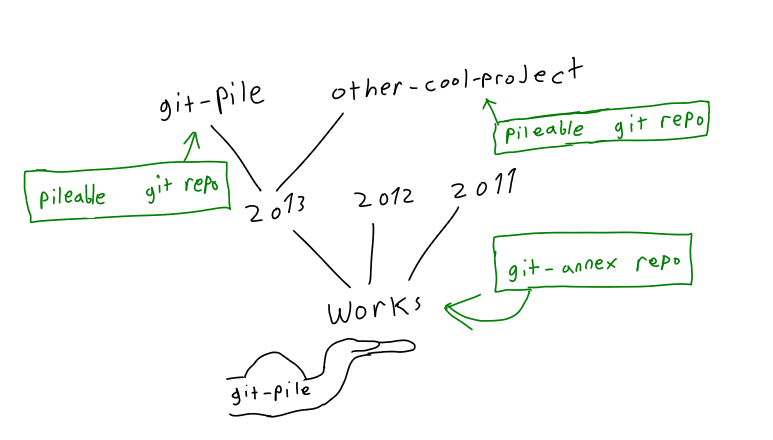 git-pile
other-cool-project
pileable git repo
pileable git repo
2013
2012
2011
git-annex repo
Works
git-pile